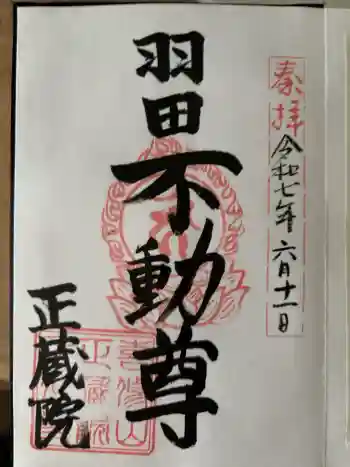 奉拝
令和七年 六月十一日
羽田不動尊
正蔵院